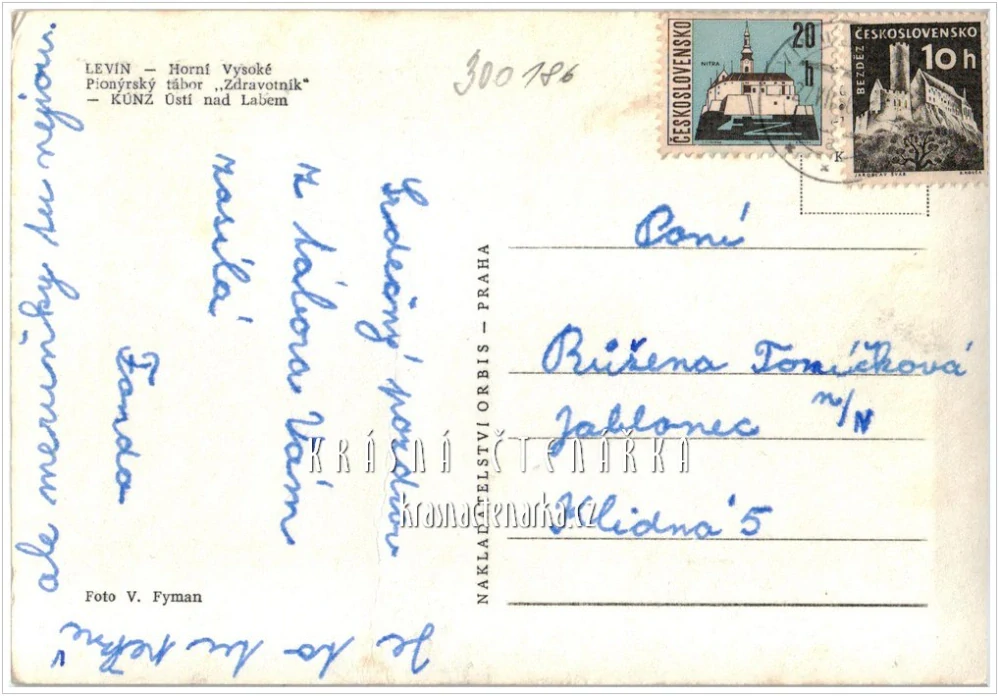 LEVÍN — Horní Vysoké
Pionýrský tábor „Zdravotník"
— KÚNZ Ústí nad Labem
300186
ČESKOSLOVENSKO
20 h
NITRA
ČESKOSLOVENSKO
10 h
BEZDĚZ
JAROSLAV ŠVÁB
K
Srdečný pozdrav
z tábora Vám
zasílá
Fanda
Je to tu pěkné
ale meruňky tu nejsou.
NAKLADATELSTVÍ ORBIS — PRAHA
Paní
Růžena Tomíčková
Jablonec n/N
Klidná 5
KRÁSNÁ ČTENÁŘKA
krasnactenarka.cz
Foto V. Fyman